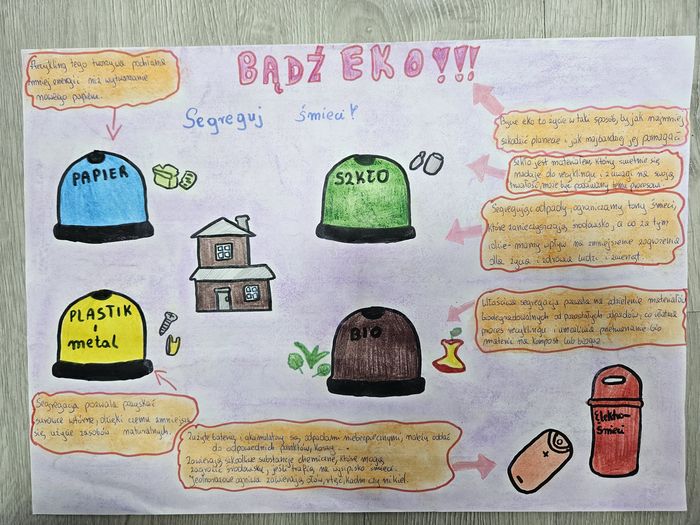 BĄDŹ EKO!!!
Segreguj śmieci!
Recykling tego tworzywa pochłania
mniej energii niż wytwarzanie
nowego papieru.
PAPIER
SZKŁO
Bycie eko to życie w taki sposób, by jak najmniej
szkodzić planecie i jak najbardziej jej pomagać.
Szkło jest materiałem, który świetnie się
nadaje do recyklingu i z uwagi na swoją
trwałość może być poddawany temu procesowi
Segregując odpady, ograniczamy tony śmieci,
które zanieczyszczają środowisko, a co za tym
idzie - mamy wpływ na zmniejszenie zagrożenia
dla życia i zdrowia ludzi i zwierząt.
PLASTIK
i
metal
BIO
Właściwa segregacja pozwala na oddzielenie materiałów
biodegradowalnych od pozostałych odpadów, co ułatwia
proces recyklingu i umożliwia przetwarzanie bio
materii na kompost lub biogaz
Segregacja pozwala pozyskać
surowce wtórne, dzięki czemu zmniejsza
się użycie zasobów naturalnych.
Zużyte baterie i akumulatory są odpadami niebezpiecznymi, należy oddać
do odpowiednich punktów,
Zawierają szkodliwe substancje chemiczne, które mogą
zagrozić środowisku, jeśli trafią na wysypisko śmieci.
Jednorazowe ogniwa zawierają ołów, rtęć, kadm czy nikiel.
Elektro-
śmieci